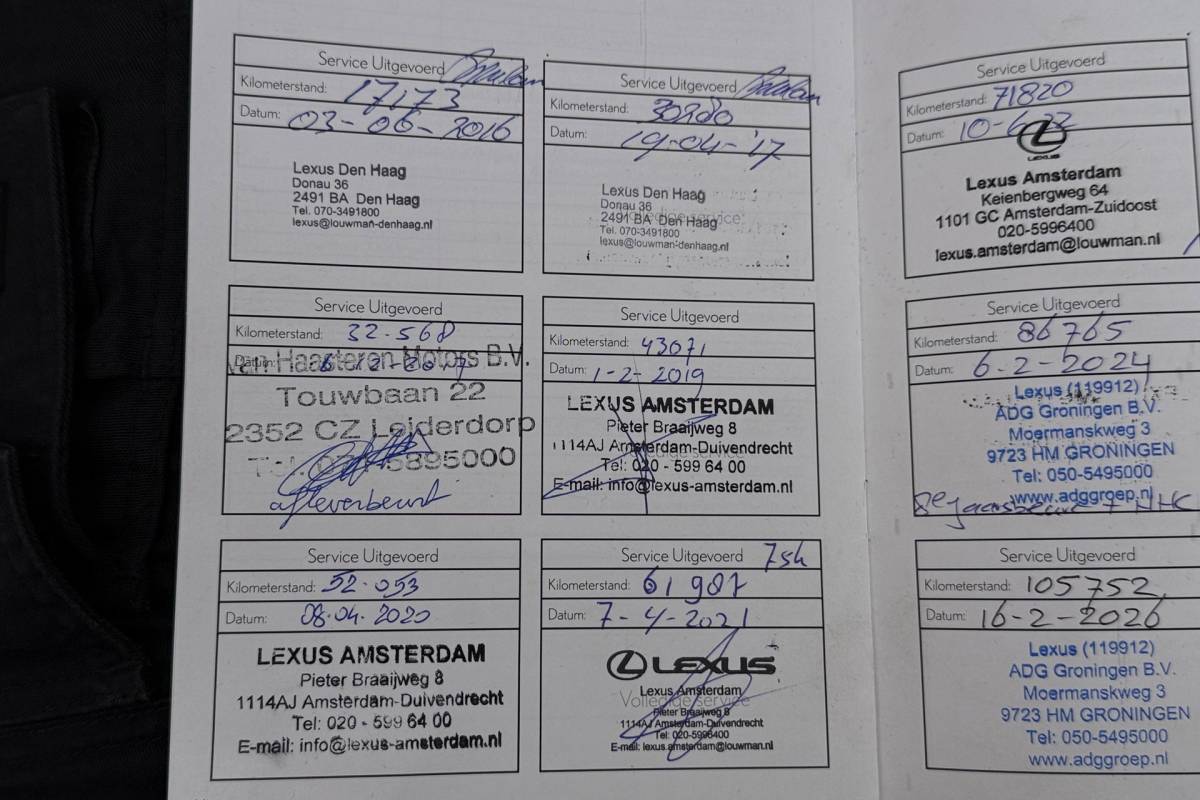 Service Uitgevoerd
Kilometerstand: 17173
Datum: 03-06-2016
Lexus Den Haag
Donau 36
2491 BA Den Haag
Tel. 070-3491800
lexus@louwman-denhaag.nl
Service Uitgevoerd
Kilometerstand: 30280
Datum: 19-04-'17
Lexus Den Haag
Donau 36
2491 BA Den Haag
Tel. 070-3491800
lexus@louwman-denhaag.nl
Service Uitgevoerd
Kilometerstand: 32-568
Datum:
van Haasteren Motors B.V.
Touwbaan 22
2352 CZ Leiderdorp
afleverbeurt
Service Uitgevoerd
Kilometerstand: 43071
Datum: 1-2-2019
LEXUS AMSTERDAM
Pieter Braaijweg 8
1114AJ Amsterdam-Duivendrecht
Tel: 020 - 599 64 00
E-mail: info@lexus-amsterdam.nl
Service Uitgevoerd
Kilometerstand: 52-053
Datum: 08-04-2020
LEXUS AMSTERDAM
Pieter Braaijweg 8
1114AJ Amsterdam-Duivendrecht
Tel: 020 - 599 64 00
E-mail: info@lexus-amsterdam.nl
Service Uitgevoerd
Kilometerstand: 61987
Datum: 7-4-2021
LEXUS
Lexus Amsterdam
Volledige service
Pieter Braaijweg 8
1114AJ Amsterdam-Duivendrecht
Tel: 020-5996400
E-mail: lexus.amsterdam@louwman.nl
Service Uitgevoerd
Kilometerstand: 71820
Datum:
LEXUS
Lexus Amsterdam
Keienbergweg 64
1101 GC Amsterdam-Zuidoost
020-5996400
lexus.amsterdam@louwman.nl
Service Uitgevoerd
Kilometerstand: 86765
Datum: 6-2-2024
Lexus (119912)
ADG Groningen B.V.
Moermanskweg 3
9723 HM GRONINGEN
Tel: 050-5495000
www.adggroep.nl
Service Uitgevoerd
Kilometerstand: 105752
Datum: 16-2-2026
Lexus (119912)
ADG Groningen B.V.
Moermanskweg 3
9723 HM GRONINGEN
Tel: 050-5495000
www.adggroep.nl